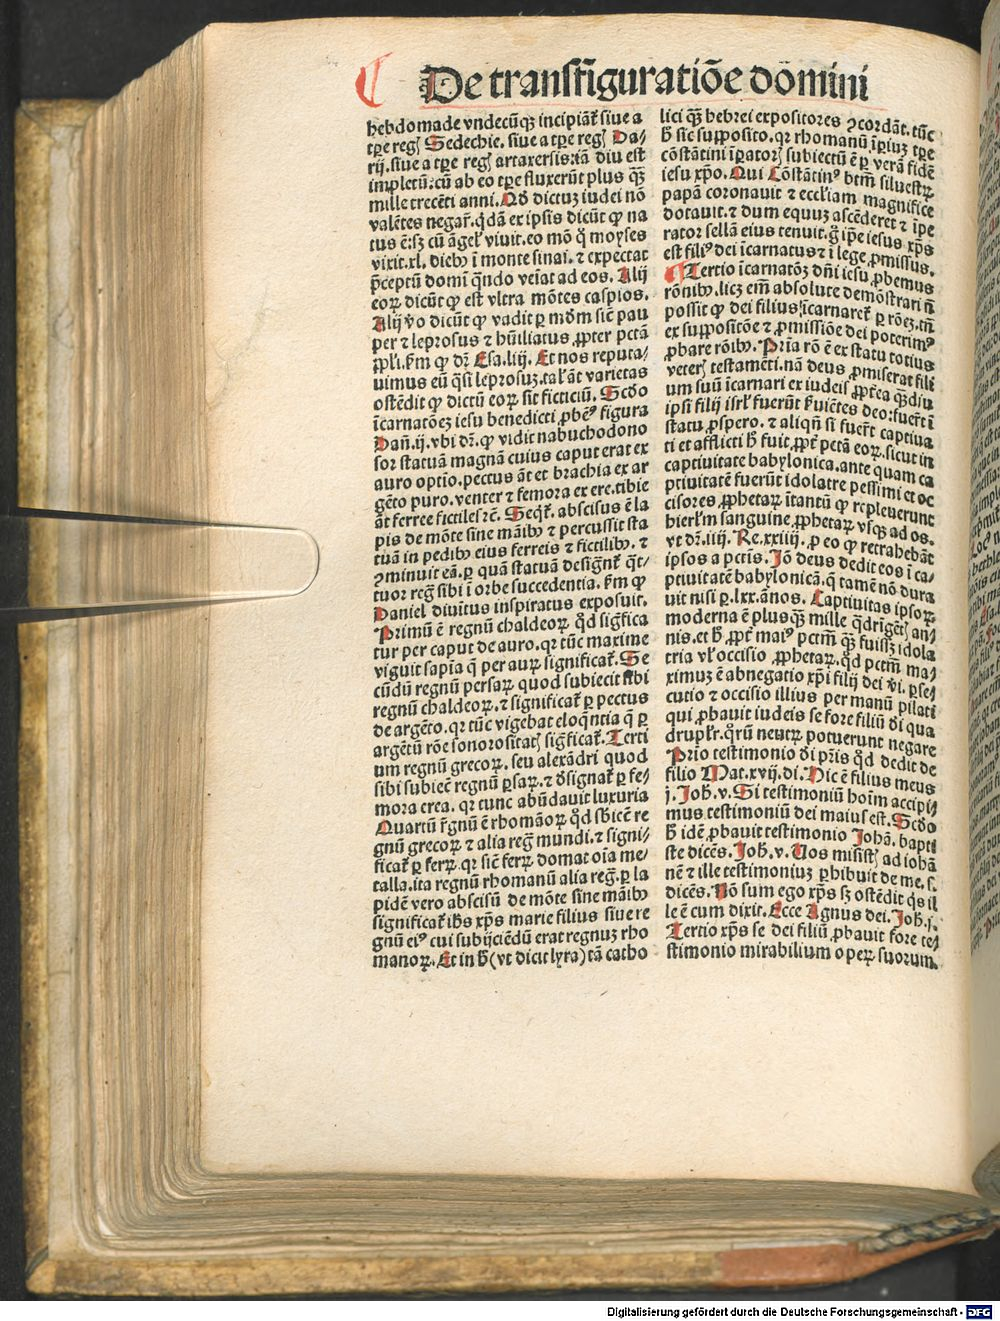 De transfiguratiõe dõmini
hebdomade vndecũqꝫ incipiãt̃ siue a
tp̃e reg̃ Sedechie. siue a tp̃e reg̃ Da/
rij. siue a tp̃e reg̃ artaxersis: tã diu est
impletũ: cũ ab eo tp̃e fluxerũt plus qꝫ̃
mille trecẽti anni. Qð dictuꝫ iudei nõ
valẽtes negar̃. q̃dã ex ipsis dicũt ꝙ na
tus ẽ: sꝫ cũ ãgel' viuit. eo mõ q̊ moyses
vixit. xl. dieb⁹ ĩ monte sinai. ⁊ expectat
p̃ceptũ domĩ q̃ndo veĩat ad eos. Alij
eoꝝ dicũt ꝙ est vltra mõtes caspios.
Alij v̊o dicũt ꝙ vadit ꝑ mõm sic̃ pau
per ⁊ leprosus ⁊ hũiliatus ꝓpter pctã
ppl̃i. ẜm ꝙ dr̃ Esa. liij. Et nos reputa/
uimus eũ q̃si leprosuꝫ. tal' ãt varietas
ostẽdit ꝙ dictũ eoꝝ sit ficticiũ. Scðo
ĩcarnatõeꝫ iesu benedicti ꝓbẽ⁹ figura
Dañ. ij. vbi dr̃. ꝙ vidit nabuchodono
sor statuã magnã cuius caput erat ex
auro optio. pectus ãt et brachia ex ar
gẽto puro. venter ⁊ femora ex ere. tibie
ãt ferree fictiles ⁊c̃. Seqt̃. abscisus ẽ la
pis de mõte sine mãib⁹ ⁊ percussit sta
tuã in pedib⁹ eius ferreis ⁊ fictilib⁹. ⁊
ꝯminuit eã. ꝑ quã statuã designt̃ q̃t/
tuor reg̃ sibi ĩ orbe succedentia. ẜm ꝙ
Daniel diuitus inspiratus exposuit.
Primũ ẽ regnũ chaldeoꝝ. qð sig̃fica
tur per caput de auro. qꝛ tũc maxime
viguit sapĩa q̃ per auꝝ significat̃. Se
cũdũ regnũ persaꝝ. quod subiecit sibi
regnũ chaldeoꝝ. ⁊ significat̃ ꝑ pectus
de argẽto. qꝛ tũc vigebat eloq̃ntia q̃ ꝑ
argẽtũ rõe sonorositat̃ sig̃ficat̃. Terti
um regnũ grecoꝝ. seu alexãdri quod
sibi subiec̃ regnũ ꝑsaꝝ. ⁊ ðsignat̃ ꝑ fe/
mora erea. qꝛ tunc abũdauit luxuria
Quartũ r̃gnũ ẽ rhomãoꝝ qð sb̃icẽ re
gnũ grecoꝝ ⁊ alia reg̃ mundi. ⁊ signi/
ficat̃ ꝑ ferꝝ. qꝛ sic̃ ferꝝ domat oĩa me/
talla. ita regnũ rhomanũ alia reg̃. ꝑ la
pidẽ vero abscisũ de mõte sine mãib⁹
significat̃ ih̃s xp̃s marie filius siue re
gnũ ei⁹ cui subijciẽdũ erat regnuꝫ rho
manoꝝ. Et in h̃ (vt dicit lyra) tã catho
lici qꝫ̃ hebrei expositores ꝯcordãt. tũc
h̃ sic supposito. qꝛ rhomanũ ĩꝑiuꝫ tp̃e
cõstãtini ĩꝑator̃ subiectũ ẽ ꝑ verã fidẽ
iesu xp̃o. Qui Cõstãtin⁹ btm̃ siluestꝝ
papã coronauit ⁊ eccl'iam magnifice
dotauit. ⁊ dum equuꝫ ascẽderet ⁊ ĩpe
rator sellã eius tenuit. g̊ ip̃e iesus xp̃s
est fili⁹ dei ĩcarnatus ⁊ ĩ lege ꝓmissus.
Tertio ĩcarnatõꝫ dñi iesu ꝓbemus
rõnib⁹. licꝫ em̃ absolute demõstrari ñ
possit ꝙ dei filius ĩcarnaret̃ ꝑ rõeꝫ. tñ
ex suppositõe ⁊ ꝓmissiõe dei poterim⁹
ꝓbare rõib⁹. Pria rõ ẽ ex statu totius
veter̃ testamẽti. nã deus ꝓmiserat fili
um suũ ĩcarnari ex iudeis ꝓpt̃ea qꝫ̃diu
ipsi filij isrl' fuerũt ẜuiẽtes deo: fuer̃t ĩ
statu ꝓspero. ⁊ aliqñ si fuer̃t captiua
ti et afflicti h̃ fuit ꝓpt̃ pctã eoꝝ. sicut in
captiuitate babylonica. ante quam ca
ptiuitatẽ fuerũt idolatre pessimi et oc
cisores ꝓphetaꝝ ĩtantũ ꝙ repleuerunt
hierl'm sanguine ꝓphetaꝝ vsqꝫ ad os.
vt dr̃. iiij. Re. xxiiij. ꝑ eo ꝙ retrahebãt
ipsos a pctĩs. Iõ deus dedit eos ĩ ca/
ptiuitatẽ babylonicã. q̃ tamẽ nõ dura
uit nisi ꝑ. lxx. ãnos. Captiuitas ipsoꝝ
moderna ẽ plusqꝫ̃ mille q̃drĩgẽt̃ an/
nis. et h̃. ꝓpt̃ mai⁹ pctm̃ qꝫ̃ fuiss̃ꝫ idola
tria vl' occisio ꝓphetaꝝ. qð pctm̃ ma/
ximuꝫ ẽ abnegatio xp̃i filij dei vi. ꝑse/
cutio ⁊ occisio illius per manũ pilati
qui ꝓbauit iudeis se fore filiũ ði qua
drupl'r. qr̃ũ neutꝝ potuerunt negare
Prĩo testimonio ði pr̃is qð dedit de
filio Mat. xvij. di. Hic ẽ filius meus
j. Joh̃. v. Si testimoniũ hoĩm accipi/
mus testimoniũ dei maius est. Scðo
h̃ idẽ ꝓbauit testimonio Johã. bapti
ste dicẽs. Joh̃. v. Uos misist̃ ad iohã
nẽ ⁊ ille testimoniuꝫ ꝑhibuit de me. s.
dicẽs. Nõ sum ego xp̃s sꝫ ostẽdit q̃s il
le ẽ cum dixit. Ecce Agnus dei. Joh̃. j.
Tertio xp̃s se dei filiũ ꝓbauit fore te/
stimonio mirabilium operꝝ suorum.
Digitalisierung gefördert durch die Deutsche Forschungsgemeinschaft - DFG